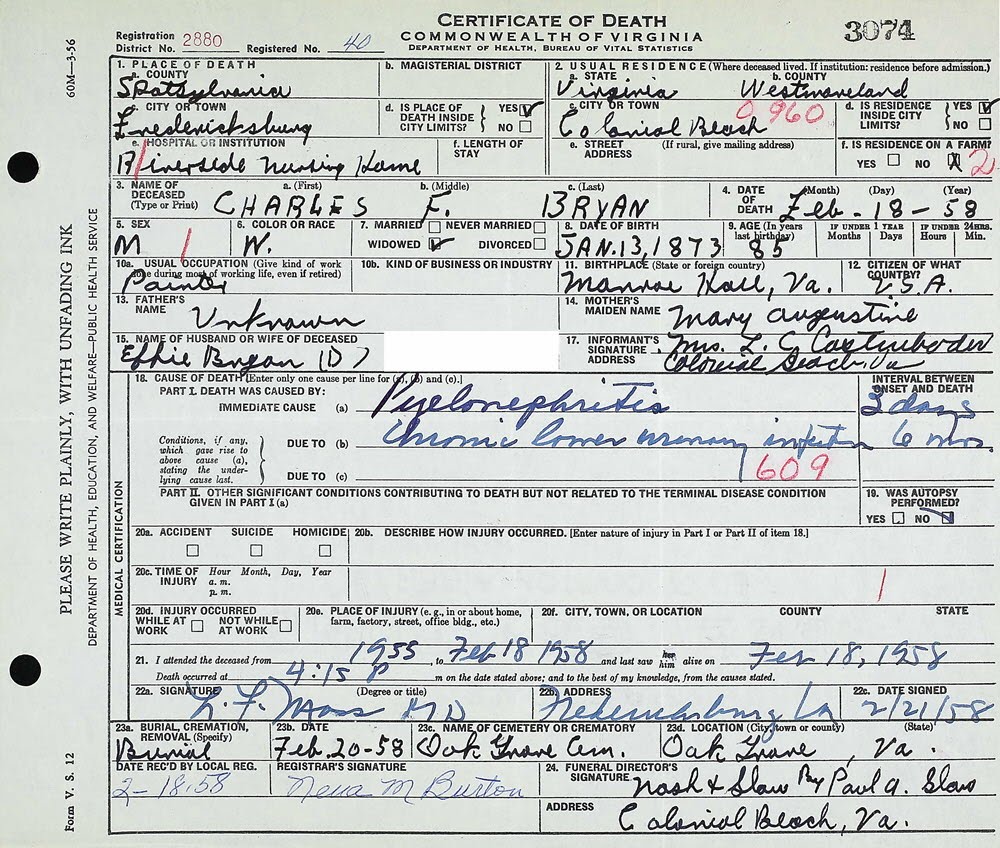 CERTIFICATE OF DEATH
COMMONWEALTH OF VIRGINIA
DEPARTMENT OF HEALTH, BUREAU OF VITAL STATISTICS
3074
Registration District No. 2880 Registered No. 40
60M—3-56
1. PLACE OF DEATH
a. COUNTY
Spotsylvania
b. MAGISTERIAL DISTRICT
2. USUAL RESIDENCE (Where deceased lived. If institution: residence before admission.)
a. STATE
Virginia
b. COUNTY
Westmoreland
c. CITY OR TOWN
Fredericksburg
d. IS PLACE OF DEATH INSIDE CITY LIMITS? YES NO
c. CITY OR TOWN
Colonial Beach
0960
d. IS RESIDENCE INSIDE CITY LIMITS? YES NO
e. HOSPITAL OR INSTITUTION
Riverside Nursing Home
f. LENGTH OF STAY
e. STREET ADDRESS (If rural, give mailing address)
f. IS RESIDENCE ON A FARM?
YES NO X 2
3. NAME OF DECEASED (Type or Print)
a. (First) b. (Middle) c. (Last)
CHARLES F. BRYAN
4. DATE OF DEATH (Month) (Day) (Year)
Feb - 18 - 58
5. SEX
M
6. COLOR OR RACE
W.
7. MARRIED NEVER MARRIED
WIDOWED DIVORCED
8. DATE OF BIRTH
JAN. 13, 1873
9. AGE (In years last birthday)
85
IF UNDER 1 YEAR Months Days
IF UNDER 24 HRS. Hours Min.
10a. USUAL OCCUPATION (Give kind of work done during most of working life, even if retired)
Painter
10b. KIND OF BUSINESS OR INDUSTRY
11. BIRTHPLACE (State or foreign country)
Monroe Hall, Va.
12. CITIZEN OF WHAT COUNTRY?
U.S.A.
13. FATHER'S NAME
Unknown
14. MOTHER'S MAIDEN NAME
Mary Augustine
15. NAME OF HUSBAND OR WIFE OF DECEASED
Effie Bryan (D)
17. INFORMANT'S SIGNATURE ADDRESS
Mrs. L. C.
Colonial Beach, Va
18. CAUSE OF DEATH [Enter only one cause per line for (a), (b) and (c).]
INTERVAL BETWEEN ONSET AND DEATH
PART I. DEATH WAS CAUSED BY:
IMMEDIATE CAUSE (a) Pyelonephritis 3 days
Conditions, if any, which gave rise to above cause (a), stating the underlying cause last.
DUE TO (b) Chronic lower urinary infection 6 mos.
DUE TO (c)
609
PART II. OTHER SIGNIFICANT CONDITIONS CONTRIBUTING TO DEATH BUT NOT RELATED TO THE TERMINAL DISEASE CONDITION GIVEN IN PART I (a)
19. WAS AUTOPSY PERFORMED?
YES NO
20a. ACCIDENT SUICIDE HOMICIDE
20b. DESCRIBE HOW INJURY OCCURRED. [Enter nature of injury in Part I or Part II of item 18.]
20c. TIME OF INJURY Hour Month, Day, Year
a. m.
p. m.
20d. INJURY OCCURRED
WHILE AT WORK NOT WHILE AT WORK
20e. PLACE OF INJURY (e. g., in or about home, farm, factory, street, office bldg., etc.)
20f. CITY, TOWN, OR LOCATION COUNTY STATE
21. I attended the deceased from 1955, to Feb 18 1958 and last saw her him alive on Feb 18, 1958
Death occurred at 4:15 P m on the date stated above; and to the best of my knowledge, from the causes stated.
22a. SIGNATURE (Degree or title)
L. F. Moss MD
22b. ADDRESS
Fredericksburg Va
22c. DATE SIGNED
2/21/58
23a. BURIAL, CREMATION, REMOVAL (Specify)
Burial
23b. DATE
Feb. 20-58
23c. NAME OF CEMETERY OR CREMATORY
Oak Grove Cem.
23d. LOCATION (City, town or county) (State)
Oak Grove, Va.
DATE REC'D BY LOCAL REG.
2-18-58
REGISTRAR'S SIGNATURE
Neva M Burton
24. FUNERAL DIRECTOR'S SIGNATURE
Nash & Slaw By Paul A. Slaw
ADDRESS
Colonial Beach, Va.
MEDICAL CERTIFICATION
PLEASE WRITE PLAINLY, WITH UNFADING INK
DEPARTMENT OF HEALTH, EDUCATION, AND WELFARE—PUBLIC HEALTH SERVICE
Form V. S. 12